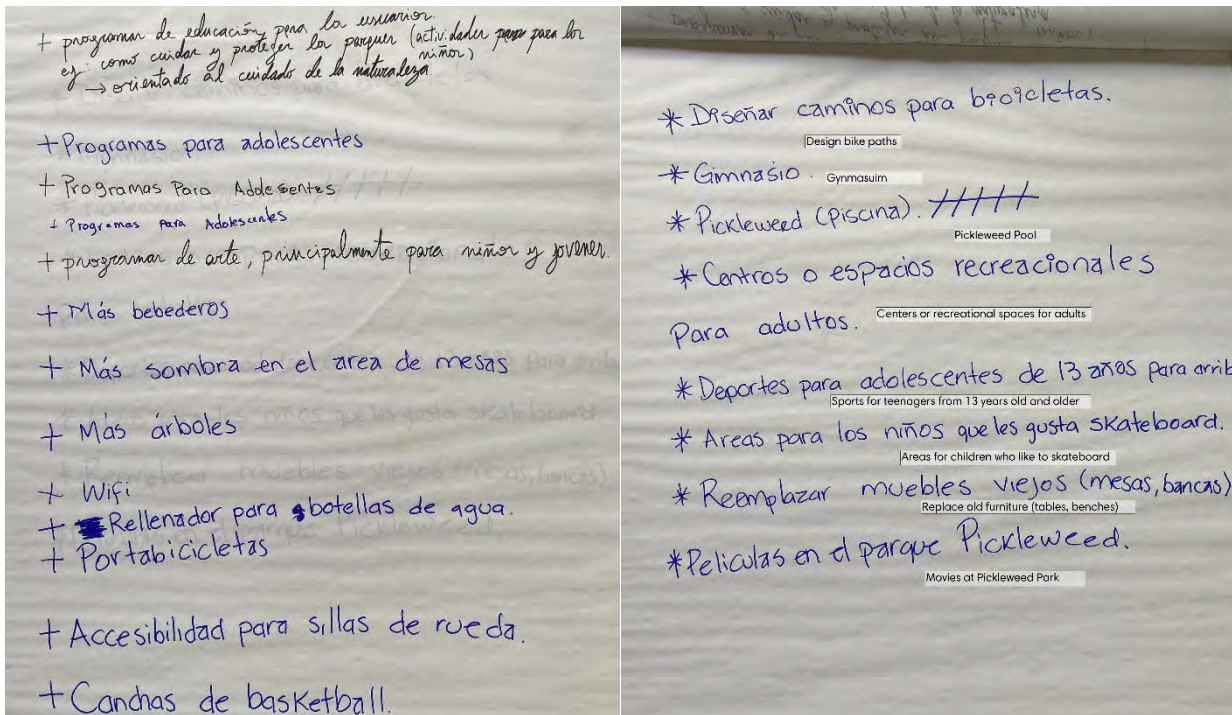 + programas de educación para los usuarios.
ej: como cuidar y proteger los parques (actividades para los
niños)
→ orientado al cuidado de la naturaleza
+ Programas para adolescentes
+ Programas Para Adolesentes
+ Programas Para Adolescentes
+ programas de arte, principalmente para niños y jovenes.
+ Más bebederos
+ Más sombra en el area de mesas
+ Más árboles
+ Wifi
+ Rellenador para botellas de agua.
+ Portabicicletas
+ Accesibilidad para sillas de rueda.
+ Canchas de basketball.
* Diseñar caminos para bicicletas.
Design bike paths
* Gimnasio.
Gynmasuim
* Pickleweed (Piscina).
Pickleweed Pool
* Centros o espacios recreacionales
Para adultos.
Centers or recreational spaces for adults
* Deportes para adolescentes de 13 años para arrib
Sports for teenagers from 13 years old and older
* Areas para los niños que les gusta skateboard.
Areas for children who like to skateboard
* Reemplazar muebles viejos (mesas, bancas)
Replace old furniture (tables, benches)
* Peliculas en el parque Pickleweed.
Movies at Pickleweed Park